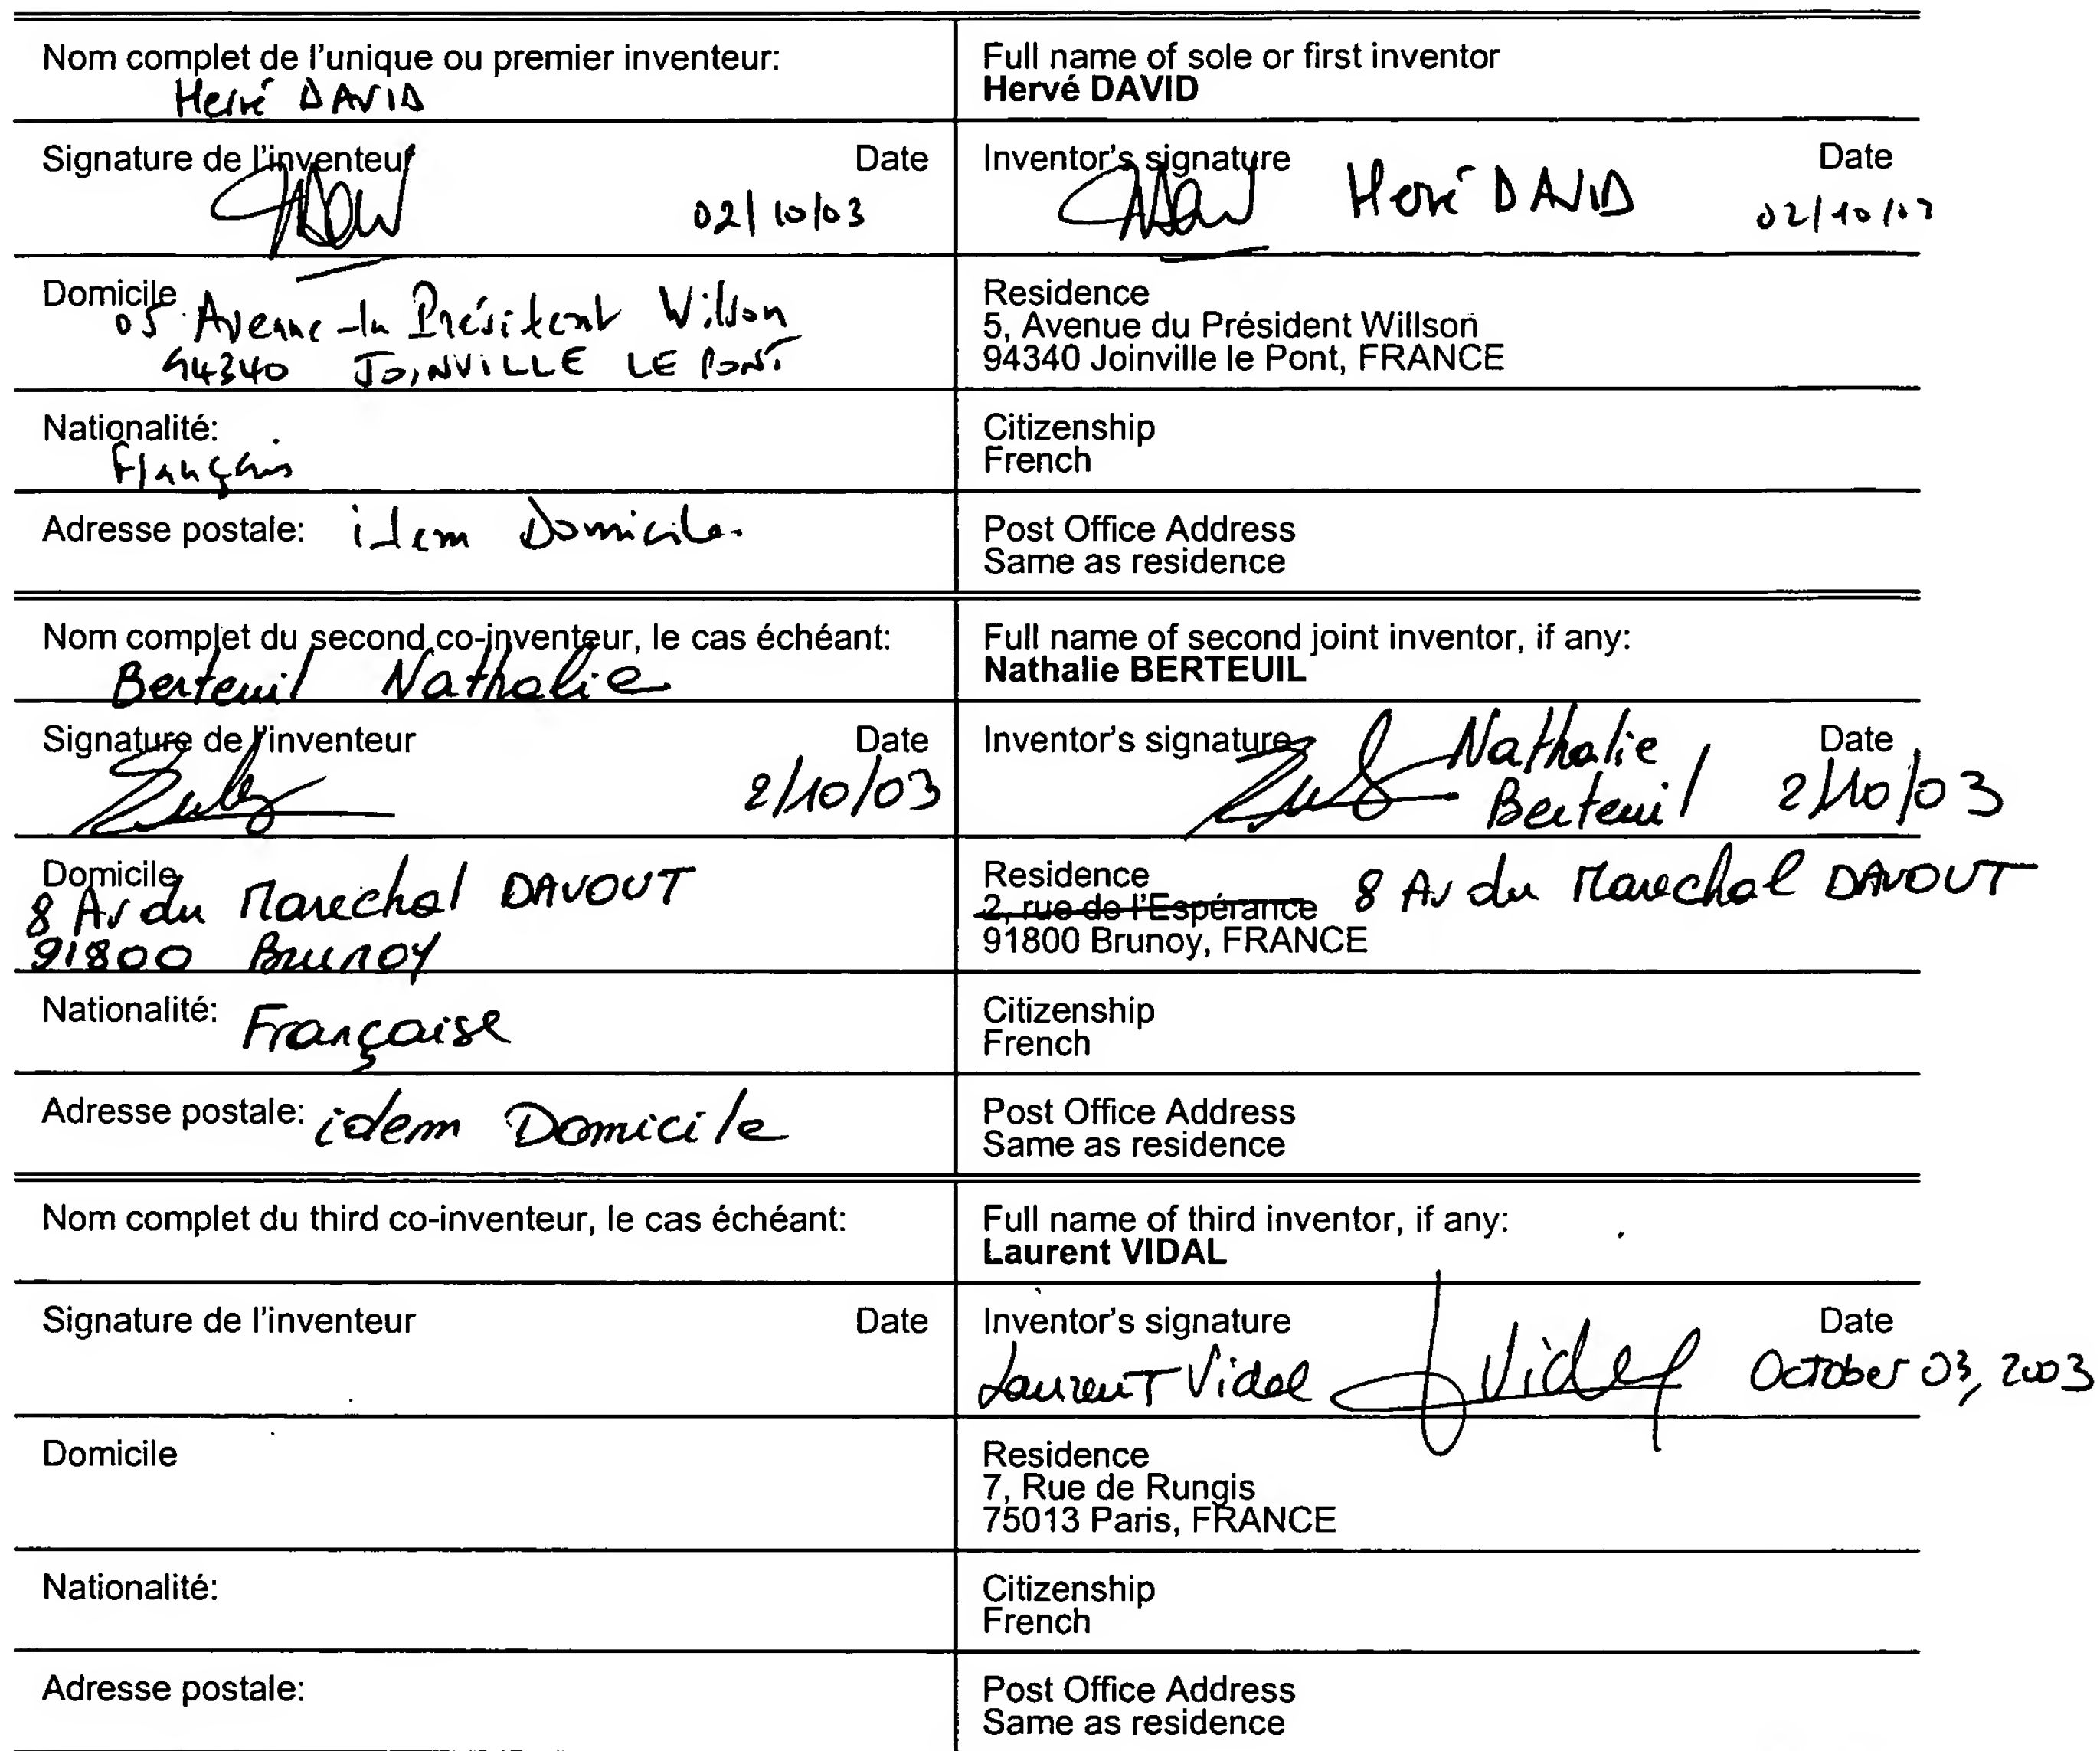 Nom complet de l'unique ou premier inventeur:
Hervé DAVID
Full name of sole or first inventor
Hervé DAVID
Signature de l'inventeur Date
02/10/03
Inventor's signature Date
Hervé DAVID 02/10/03
Domicile
05 Avenue du Président Wilson
94340 JOINVILLE LE PONT
Residence
5, Avenue du Président Willson
94340 Joinville le Pont, FRANCE
Nationalité:
Français
Citizenship
French
Adresse postale: idem Domicile.
Post Office Address
Same as residence
Nom complet du second co-inventeur, le cas échéant:
Berteuil Nathalie
Full name of second joint inventor, if any:
Nathalie BERTEUIL
Signature de l'inventeur Date
2/10/03
Inventor's signature Nathalie Date
Berteuil 2/10/03
Domicile
8 Av du Marechal DAVOUT
91800 Brunoy
Residence
2, rue de l'Espérance 8 Av du Marechal DAVOUT
91800 Brunoy, FRANCE
Nationalité: Française
Citizenship
French
Adresse postale: idem Domicile
Post Office Address
Same as residence
Nom complet du third co-inventeur, le cas échéant:
Full name of third inventor, if any:
Laurent VIDAL
Signature de l'inventeur Date
Inventor's signature Date
Laurent Vidal Vidal October 03, 2003
Domicile
Residence
7, Rue de Rungis
75013 Paris, FRANCE
Nationalité:
Citizenship
French
Adresse postale:
Post Office Address
Same as residence